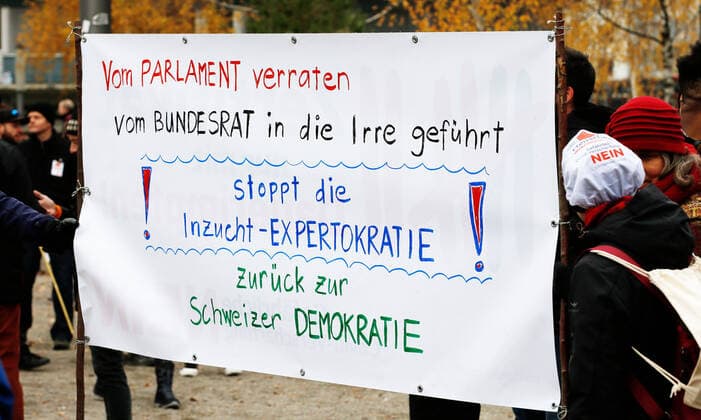 Vom PARLAMENT verraten
vom BUNDESRAT in die Irre geführt
! stoppt die !
Inzucht-EXPERTOKRATIE
zurück zur
Schweizer DEMOKRATIE
NEIN